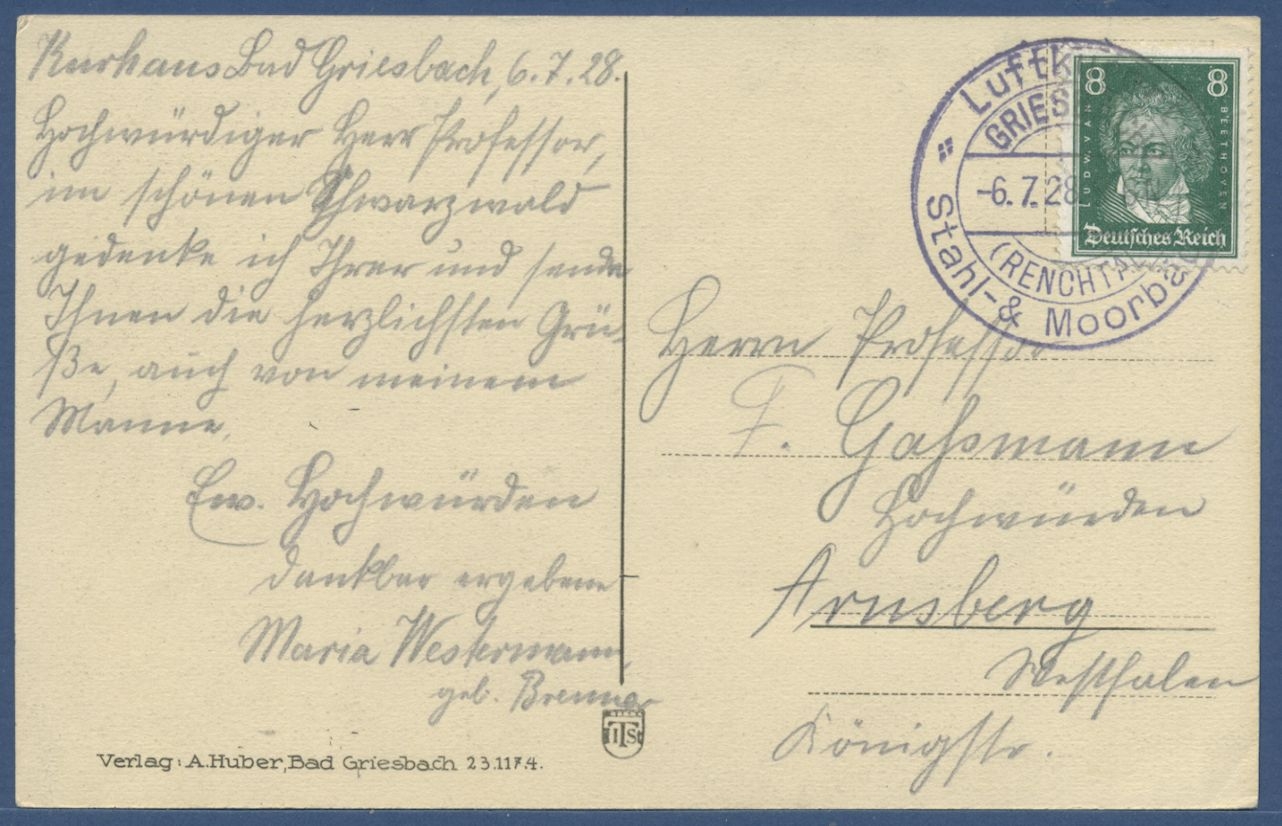 Kurhaus Bad Griesbach, 6.7.28.
Hochwürdiger Herr Professor,
im schönen Schwarzwald
gedenke ich Ihrer und sende
Ihnen die herzlichsten Grü-
ße, auch von meinem
Manne.
Ew. Hochwürden
dankbar ergebene
Maria Westermann,
geb. Brenner
Verlag: A. Huber, Bad Griesbach 23.117.4.
ITS
Luftk
GRIES
-6.7.28
(RENCHTAL)
Stahl- & Moorba
8 8
LUDW. VAN BEETHOVEN
Deutsches Reich
Herrn Professor
F. Gaßmann
Hochwürden
Arnsberg
Westfalen
Königstr.